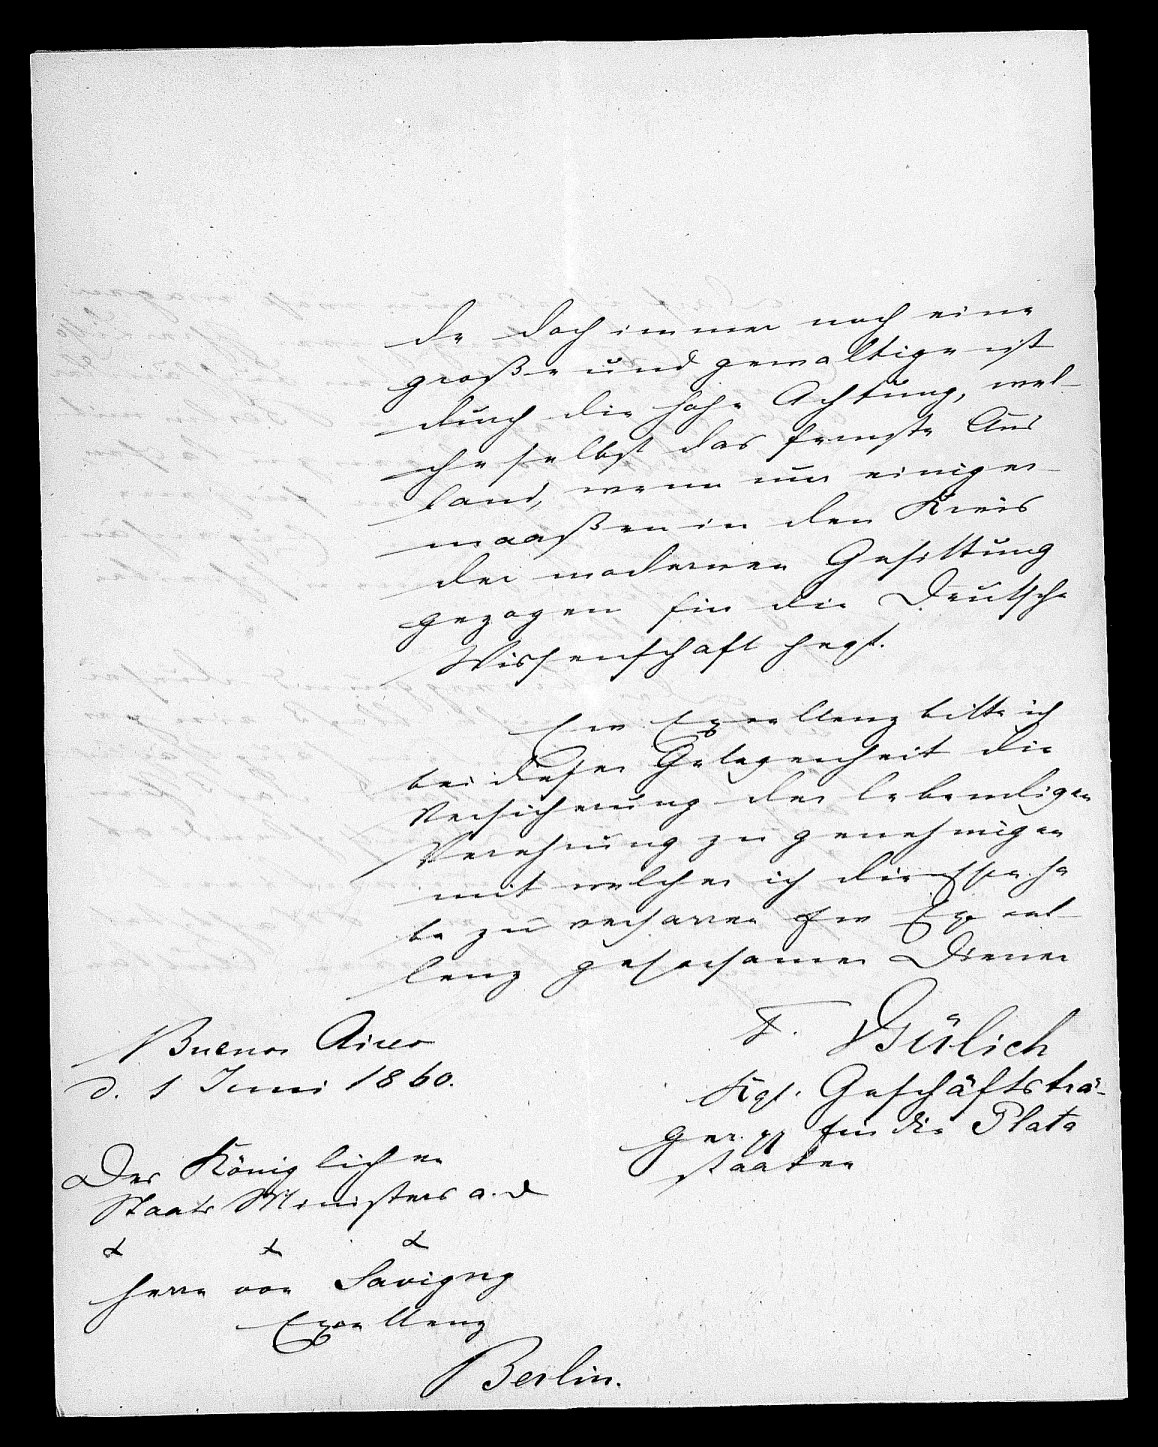 de doch immer noch eine
große und gewaltige ist
durch die hohe Achtung, wel-
che selbst das fernste Aus
land, wenn nur einiger-
maaßen in den Kreis
der modernen Gesittung
gezogen für die Deutsche
Wissenschaft hegt.
Ew. Excellenz bitte ich
bei dieser Gelegenheit die
Versicherung der lebendigen
Verehrung zu genehmigen
mit welcher ich die Ehre ha
be zu verharren Ew Excel-
lenz gehorsamer Diener
F. Gülich
Kgl. Geschäftsträ-
ger pp für die Plata
staaten
Buenos Aires
d. 1 Juni 1860.
Des Königlichen
Staats Ministers a. D
Herrn von Savigny
Excellenz
Berlin.